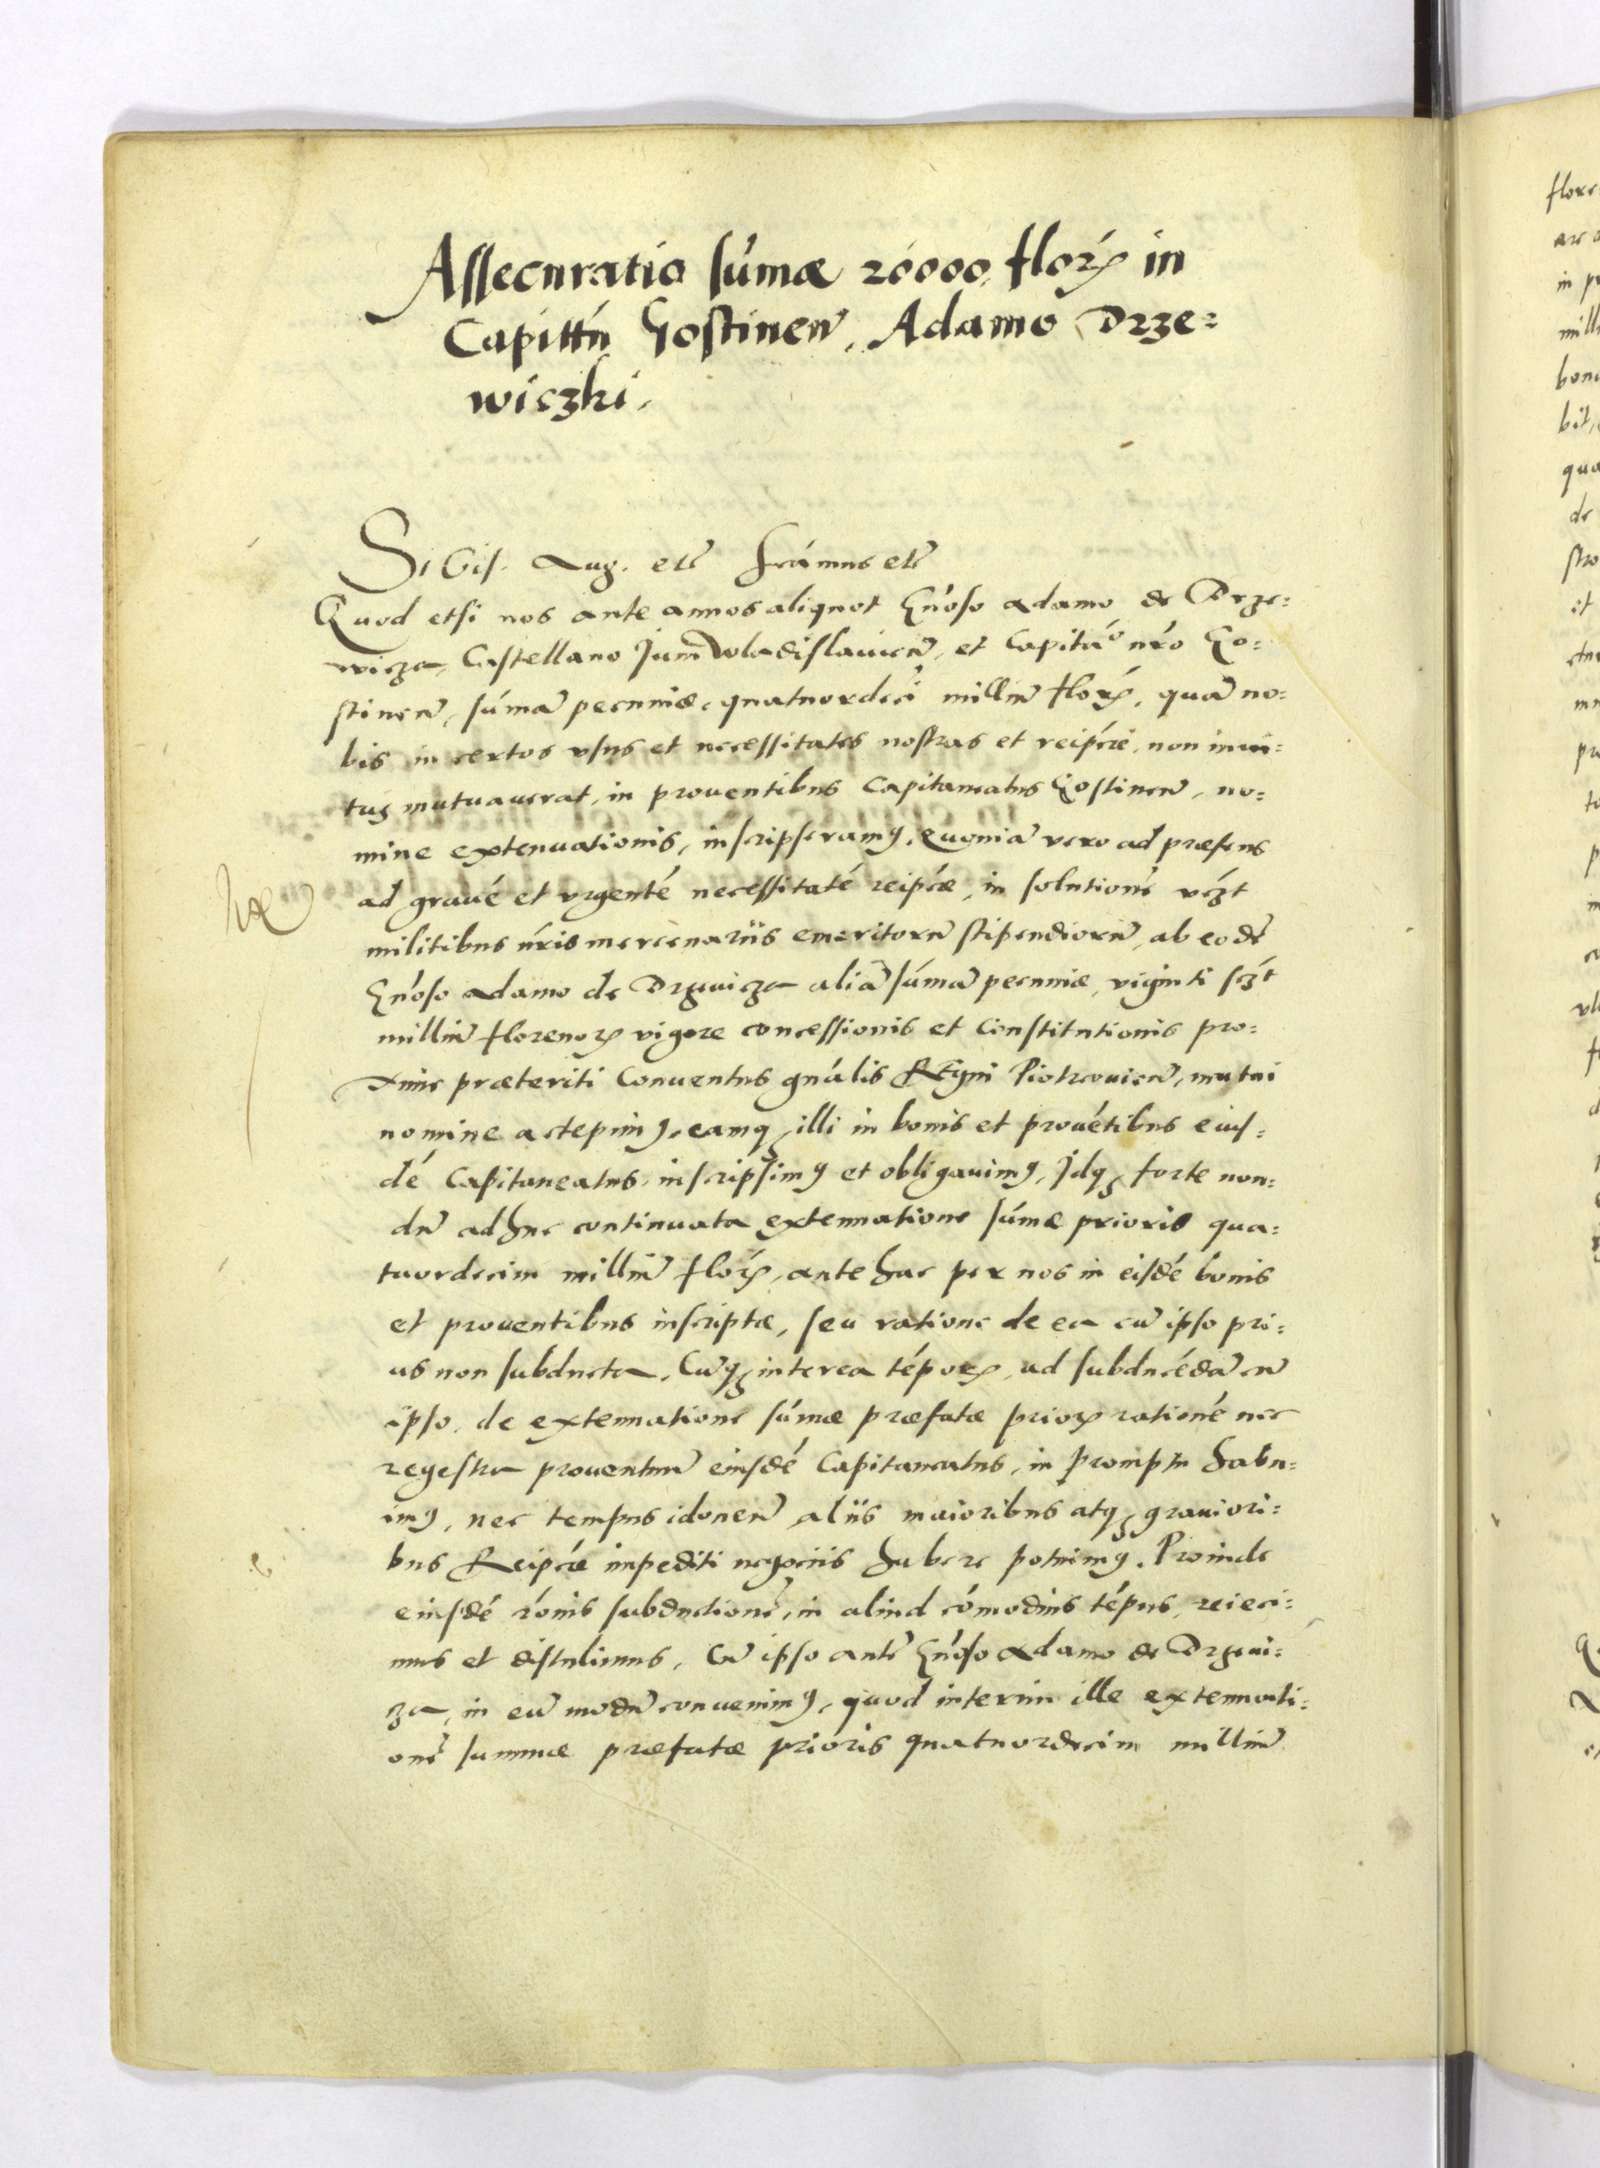 Assecuratio sum̃æ 20000 floꝝ in
Capittũ Gostinen̄. Adamo Drze=
wiczki.
Sigis. Aug. etc̃ Sc̃amus etc̃
Quod etsi nos ante annos aliquot Gn̄oso Adamo de Drze=
wicza, Castellano Jun̄ Wladislavien̄, et Capit̃ō nr̃o Go=
stinen̄, sum̃ā pecuniæ, quatuordeci millin̄ floꝝ, quā no=
bis in certos vsus et necessitates nostras et reipcæ, non inui=
tus mutuauerat, in prouentibus Capitaneatus Gostinen̄, no=
mine extenuationis, inscripseramꝰ. Quoniā vero ad præsens
ad grauē et vrgentē necessitatē reipcæ, in solutionē vcz̃t
militibus nr̃is mercenariis emeritorū stipendiorū, ab eodē
Gn̄oso Adamo de Drzewicza aliā sum̃ā pecuniæ, viginti scz̃t
milliū florenoꝝ vigore concessionis et Constitutionis pro=
xime præteriti Conuentus gnālis Regni Piotrcouien̄, mutui
nomine accepimꝰ, eamqꝫ illi in bonis et prouētibus eius=
dē Capitaneatus, inscripsimꝰ et obligauimꝰ, Jdqꝫ forte non=
dū adhuc continuata extenuatione sum̃æ prioris qua=
tuordecim milliū floꝝ, ante hac per nos in eisdē bonis
et prouentibus inscriptæ, seu ratione de ea cū ipso pri=
us non subducta. Cūqꝫ interea tēpoꝝ, ad subducēdā cū
ipso, de extenuatione sum̃æ præfatæ prioꝝ rationē nec
regestra prouentuū eiusdē Capitaneatus, in promptu habu=
imꝰ, nec tempus idoneū aliis maioribus atqꝫ grauiori=
bus Reipcæ impediti negociis habere potuimꝰ. Proinde
eiusdē rōnis subductionē, in aliud cōmodius tēpus, reieci=
mus et distulimus, Cū ipso autē Gn̄oso Adamo de Drzewi=
cza, in eū modū conuenimꝰ, quod interim ille extenuati=
onē summæ præfatæ prioris quatuordecim milliū